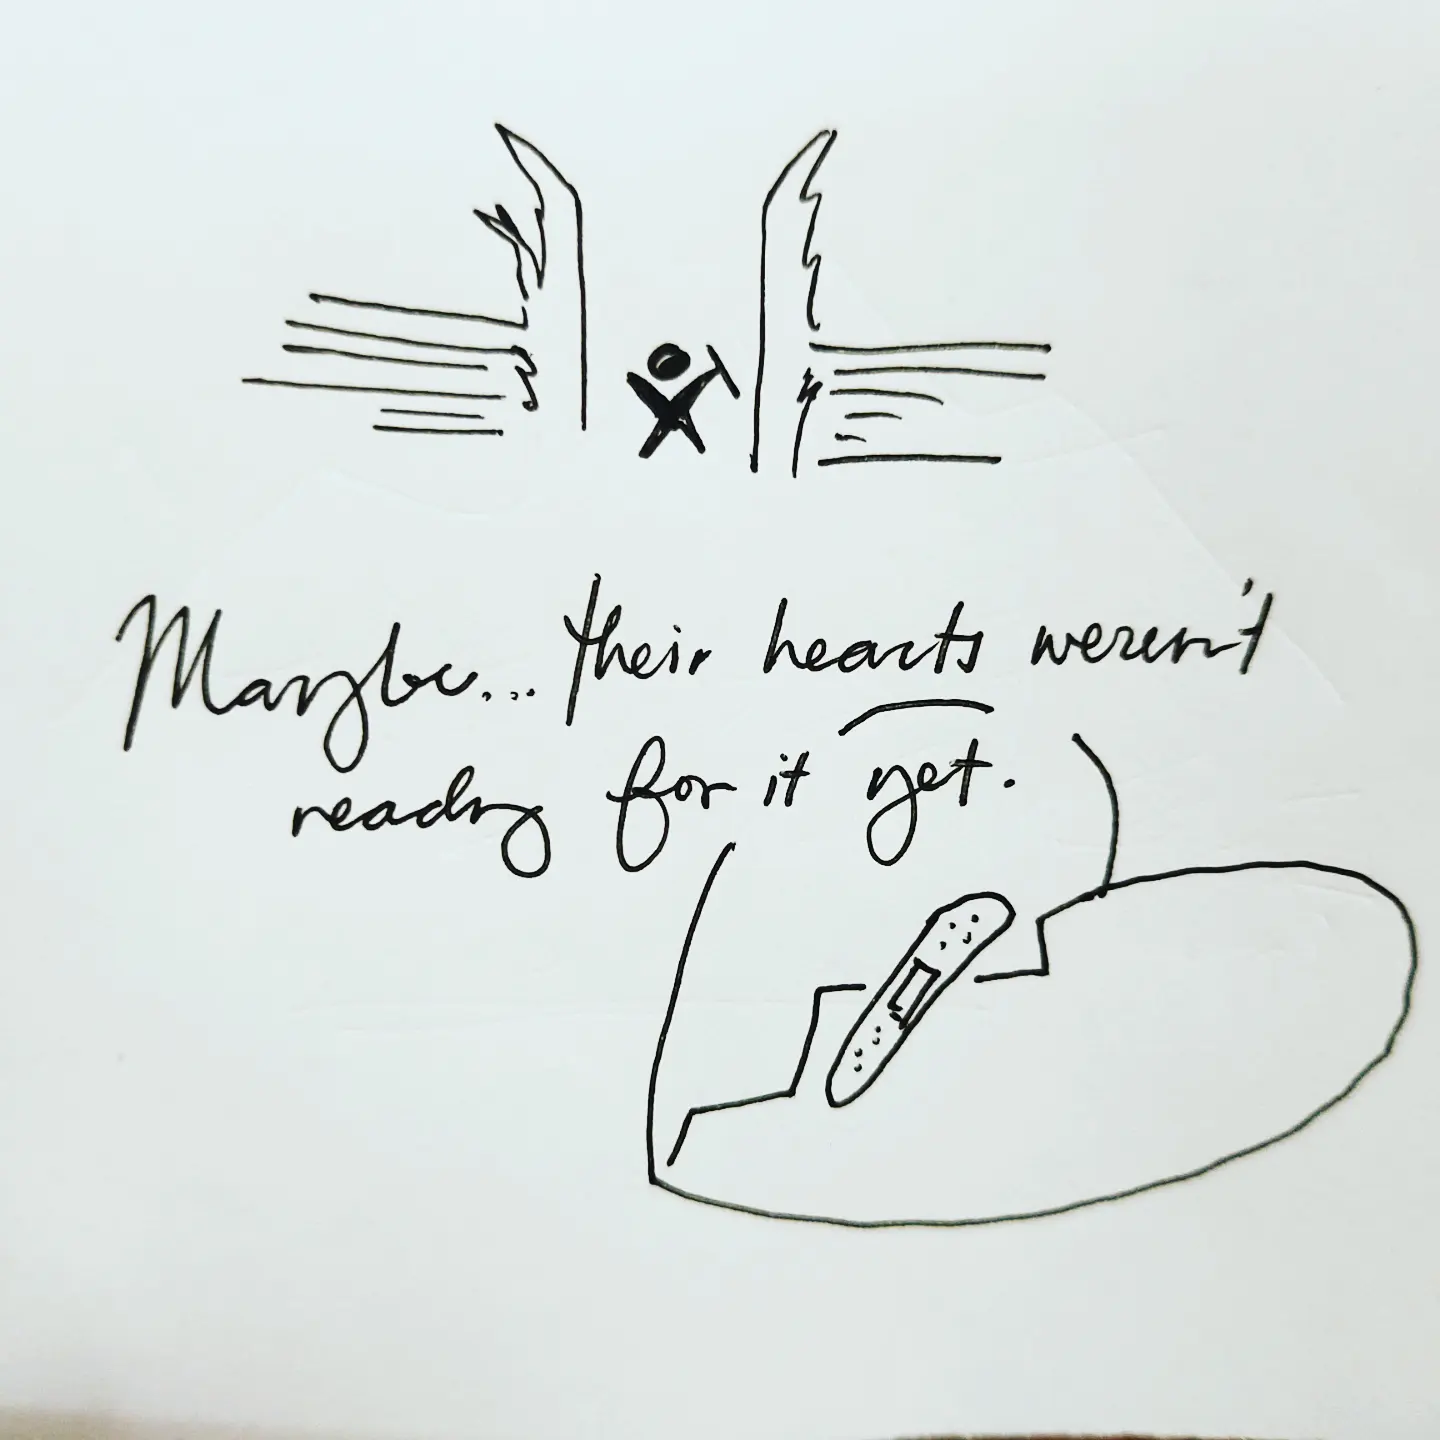 Maybe... their hearts weren't
ready for it yet.